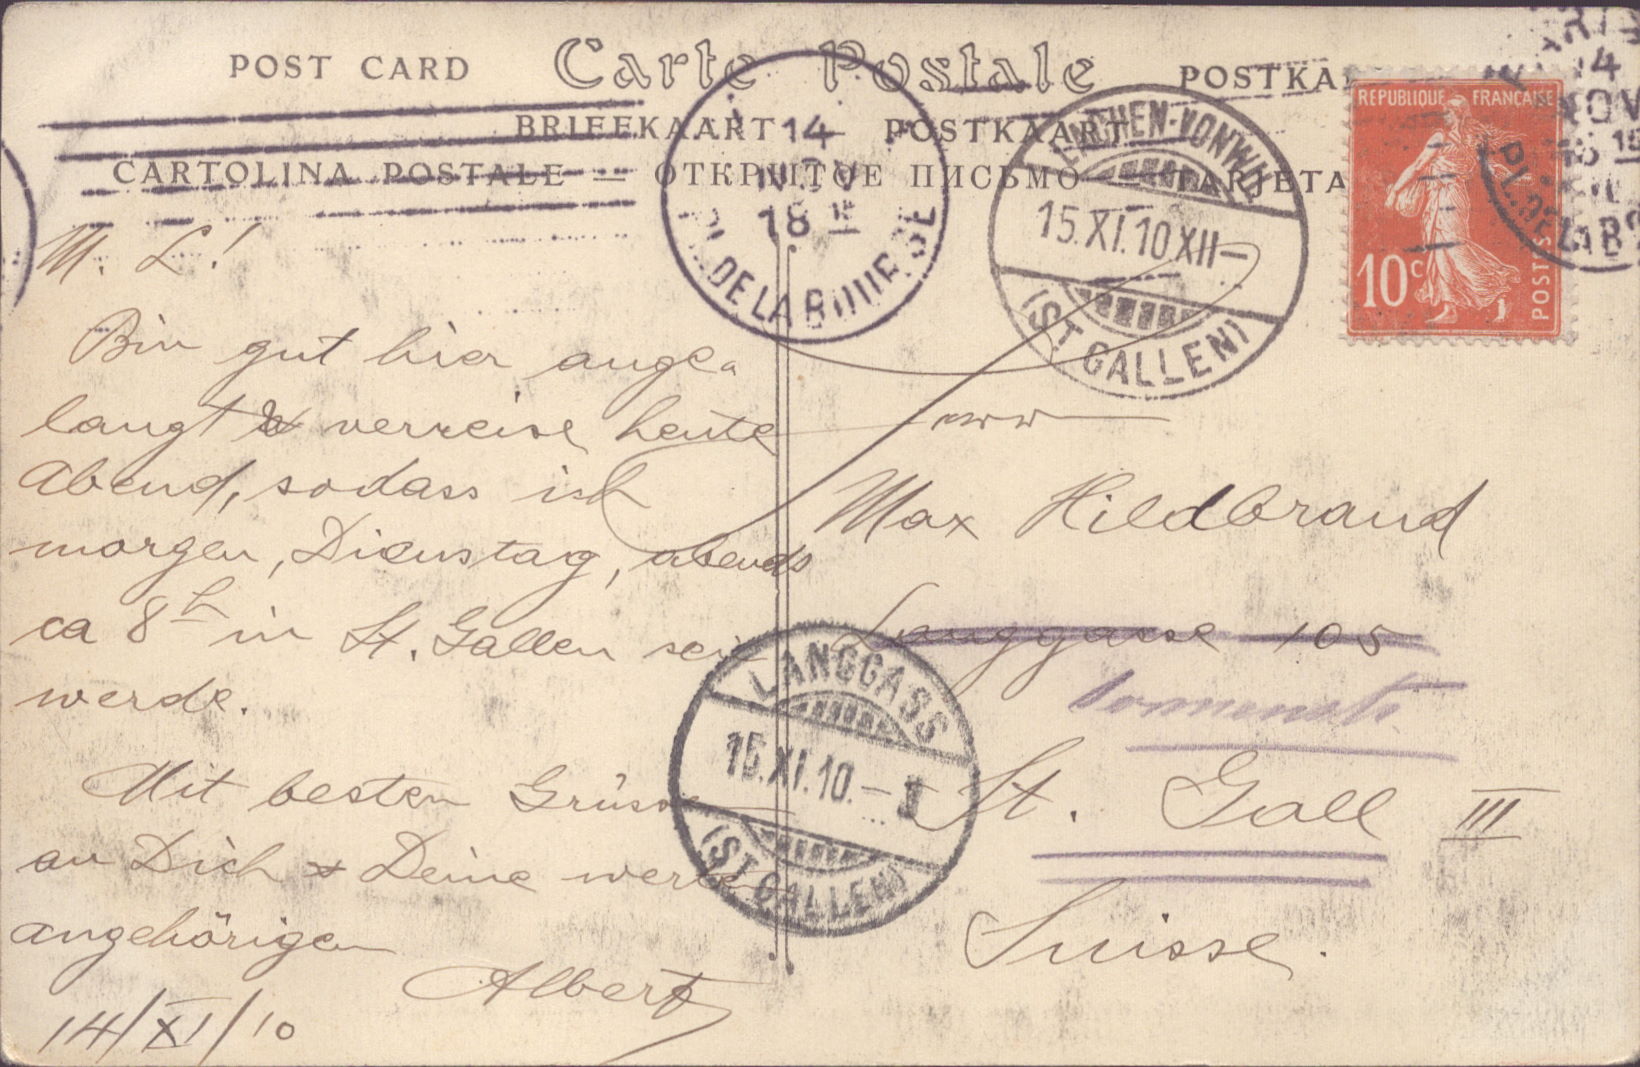 POST CARD Carte Postale POSTKA
BRIEFKAART — POSTKAART
CARTOLINA POSTALE — ОТКРЫТОЕ ПИСЬМО — TARJETA
14
NOV
18 10
PL. DE LA BOURSE
LACHEN-VONWIL
15.XI.10 XII–
(ST GALLEN)
REPUBLIQUE FRANÇAISE
10c
POSTES
14
NOV
PL. DE LA B
M. L!
Bin gut hier ange-
langt & verreise heute
Abend, sodass ich
morgen, Dienstag, abends
ca 8h in St. Gallen sein
werde.
Mit besten Grüssen
an Dich & Deine werten
angehörigen
Albert
14/XI/10
Max Hildbrand
Langgasse 105
St. Gall III
Suisse.
LANGGASS
15.XI.10.–
(ST GALLEN)